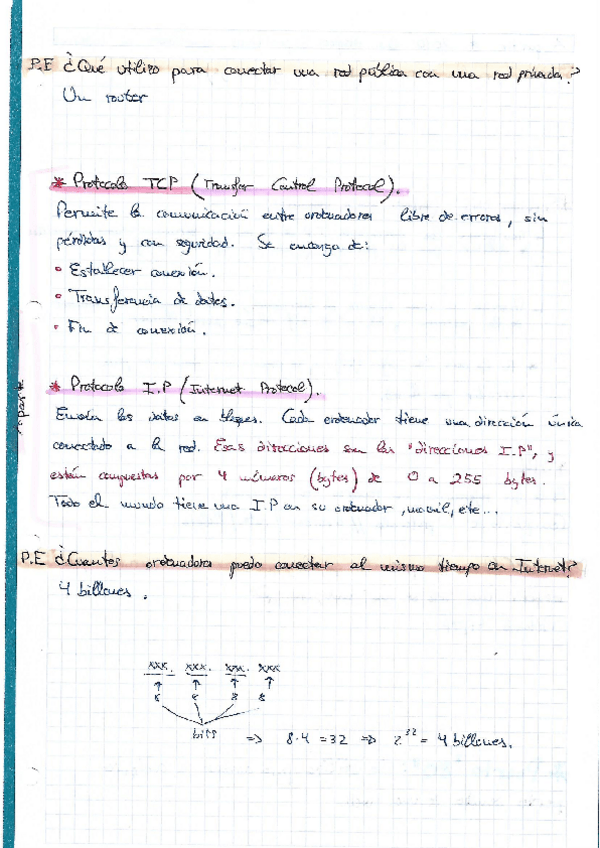 P.E ¿Qué utilizo para conectar una red pública con una red privada?
Un router
* Protocolo TCP (Transfer Control Protocol).
Permite la comunicación entre ordenadores libre de errores, sin
pérdidas y con seguridad. Se encarga de:
• Establecer conexión.
• Transferencia de datos.
• Fin de conexión.
* Protocolo I.P (Internet Protocol).
Envía los datos en bloques. Cada ordenador tiene una dirección única
conectado a la red. Esas direcciones son las "direcciones I.P", y
están compuestas por 4 números (bytes) de 0 a 255 bytes.
Todo el mundo tiene una I.P en su ordenador, movil, etc...
P.E ¿Cuantos ordenadores puedo conectar al mismo tiempo en Internet?
4 billones.
xxx. xxx. xxx. xxx
8 8 8 8
bits => 8·4 = 32 => 2^32 = 4 billones.